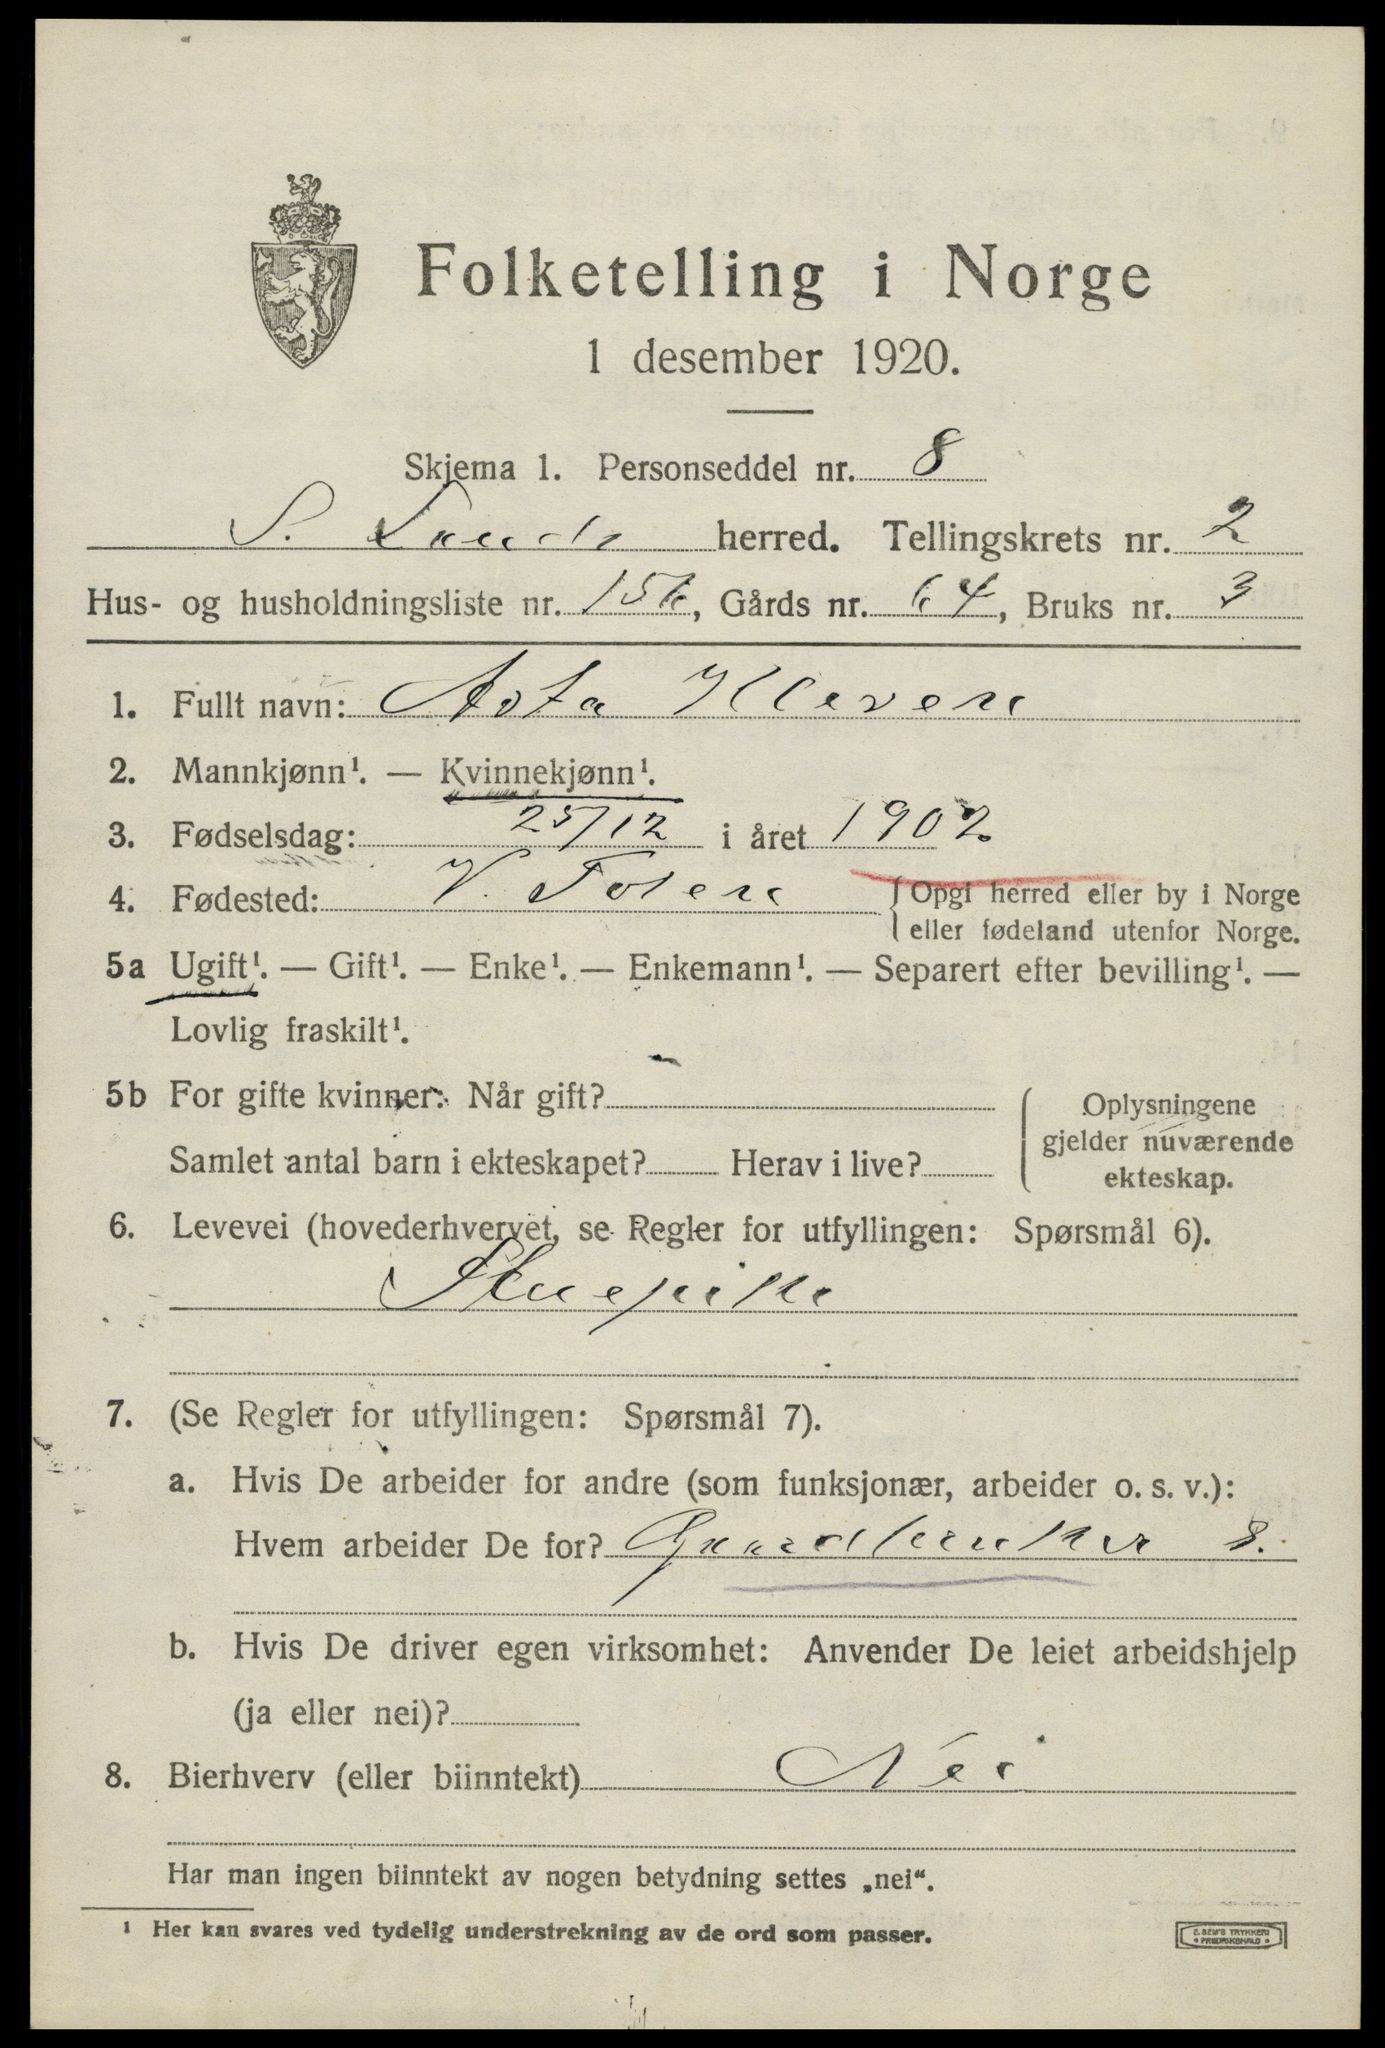 Folketelling i Norge
1 desember 1920.
Skjema 1. Personseddel nr. 8
S. Land herred. Tellingskrets nr. 2
Hus- og husholdningsliste nr. 156, Gårds nr. 64, Bruks nr. 3
1. Fullt navn: Asta Kleven
2. Mannkjønn¹. — Kvinnekjønn¹.
3. Fødselsdag: 25/12 i året 1902
4. Fødested: V. Toten {Opgi herred eller by i Norge
eller fødeland utenfor Norge.
5a Ugift¹. — Gift¹. — Enke¹. — Enkemann¹. — Separert efter bevilling¹. —
Lovlig fraskilt¹.
5b For gifte kvinner: Når gift?
Samlet antal barn i ekteskapet? Herav i live?
Oplysningene
gjelder nuværende
ekteskap.
6. Levevei (hovederhvervet, se Regler for utfyllingen: Spørsmål 6).
Stuepike
7. (Se Regler for utfyllingen: Spørsmål 7).
a. Hvis De arbeider for andre (som funksjonær, arbeider o. s. v.):
Hvem arbeider De for? Gaardbruker 8.
b. Hvis De driver egen virksomhet: Anvender De leiet arbeidshjelp
(ja eller nei)?
8. Bierhverv (eller biinntekt) Nei
Har man ingen biinntekt av nogen betydning settes „nei“.
¹ Her kan svares ved tydelig understrekning av de ord som passer.
E. SEM'S TRYKKERI
FREDRIKSHALD